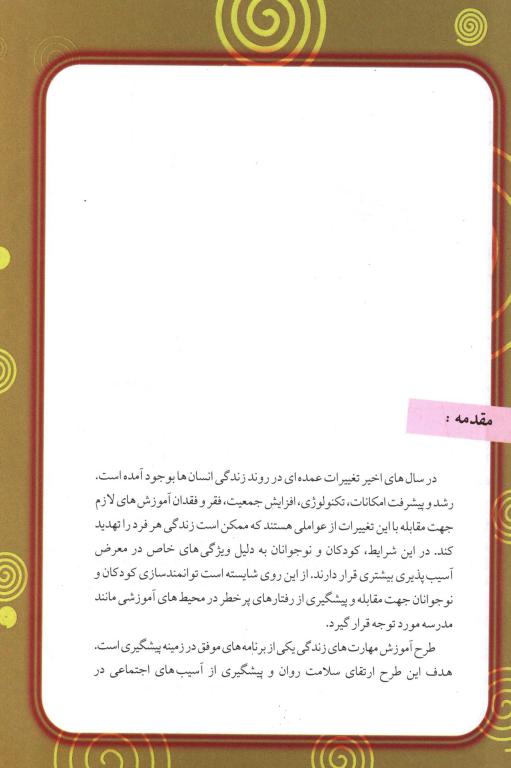 مقدمه :
در سال های اخیر تغییرات عمده ای در روند زندگی انسان ها بوجود آمده است.
رشد و پیشرفت امکانات، تکنولوژی، افزایش جمعیت، فقر و فقدان آموزش های لازم
جهت مقابله با این تغییرات از عواملی هستند که ممکن است زندگی هر فرد را تهدید
کند. در این شرایط، کودکان و نوجوانان به دلیل ویژگی های خاص در معرض
آسیب پذیری بیشتری قرار دارند. از این روی شایسته است توانمندسازی کودکان و
نوجوانان جهت مقابله و پیشگیری از رفتارهای پر خطر در محیط های آموزشی مانند
مدرسه مورد توجه قرار گیرد.
طرح آموزش مهارت های زندگی یکی از برنامه های موفق در زمینه پیشگیری است.
هدف این طرح ارتقای سلامت روان و پیشگیری از آسیب های اجتماعی در